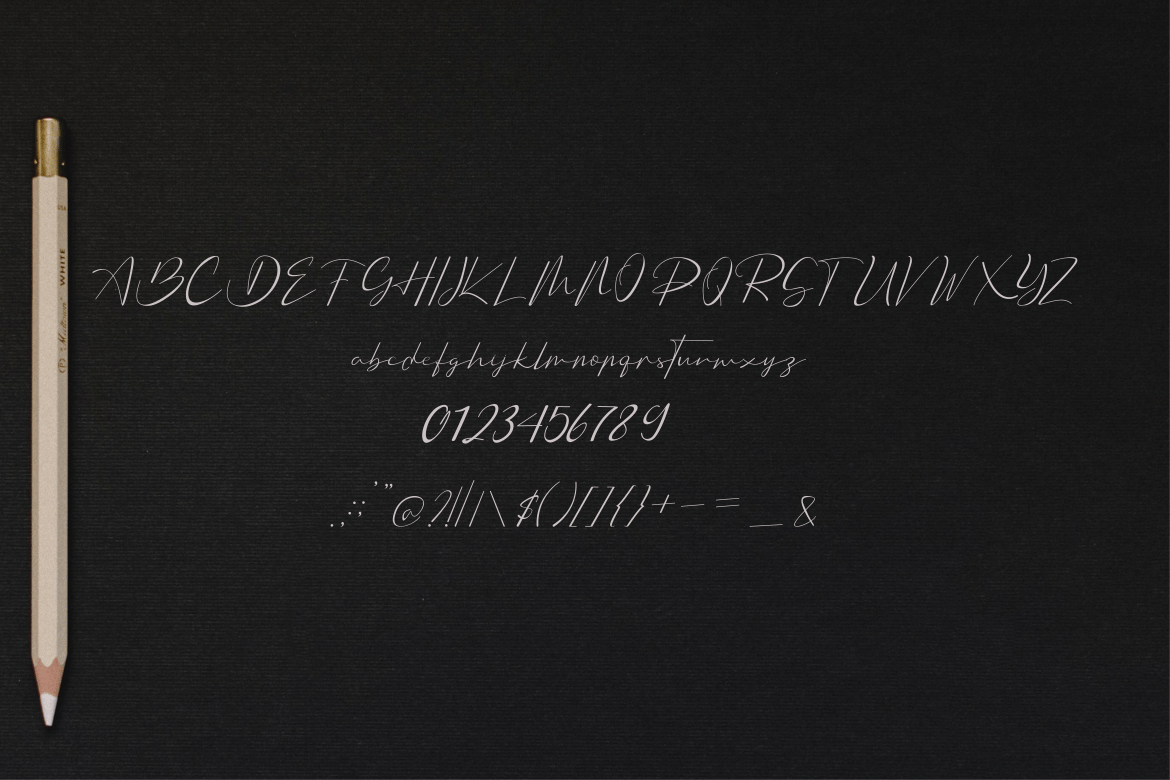 ABCDEFGHIJKLMNOPQRSTUVWXYZ
abcdefghijklmnopqrstuvwxyz
0123456789
.,;:'"@?!/|\$()[]{}+-–=_&
WHITE